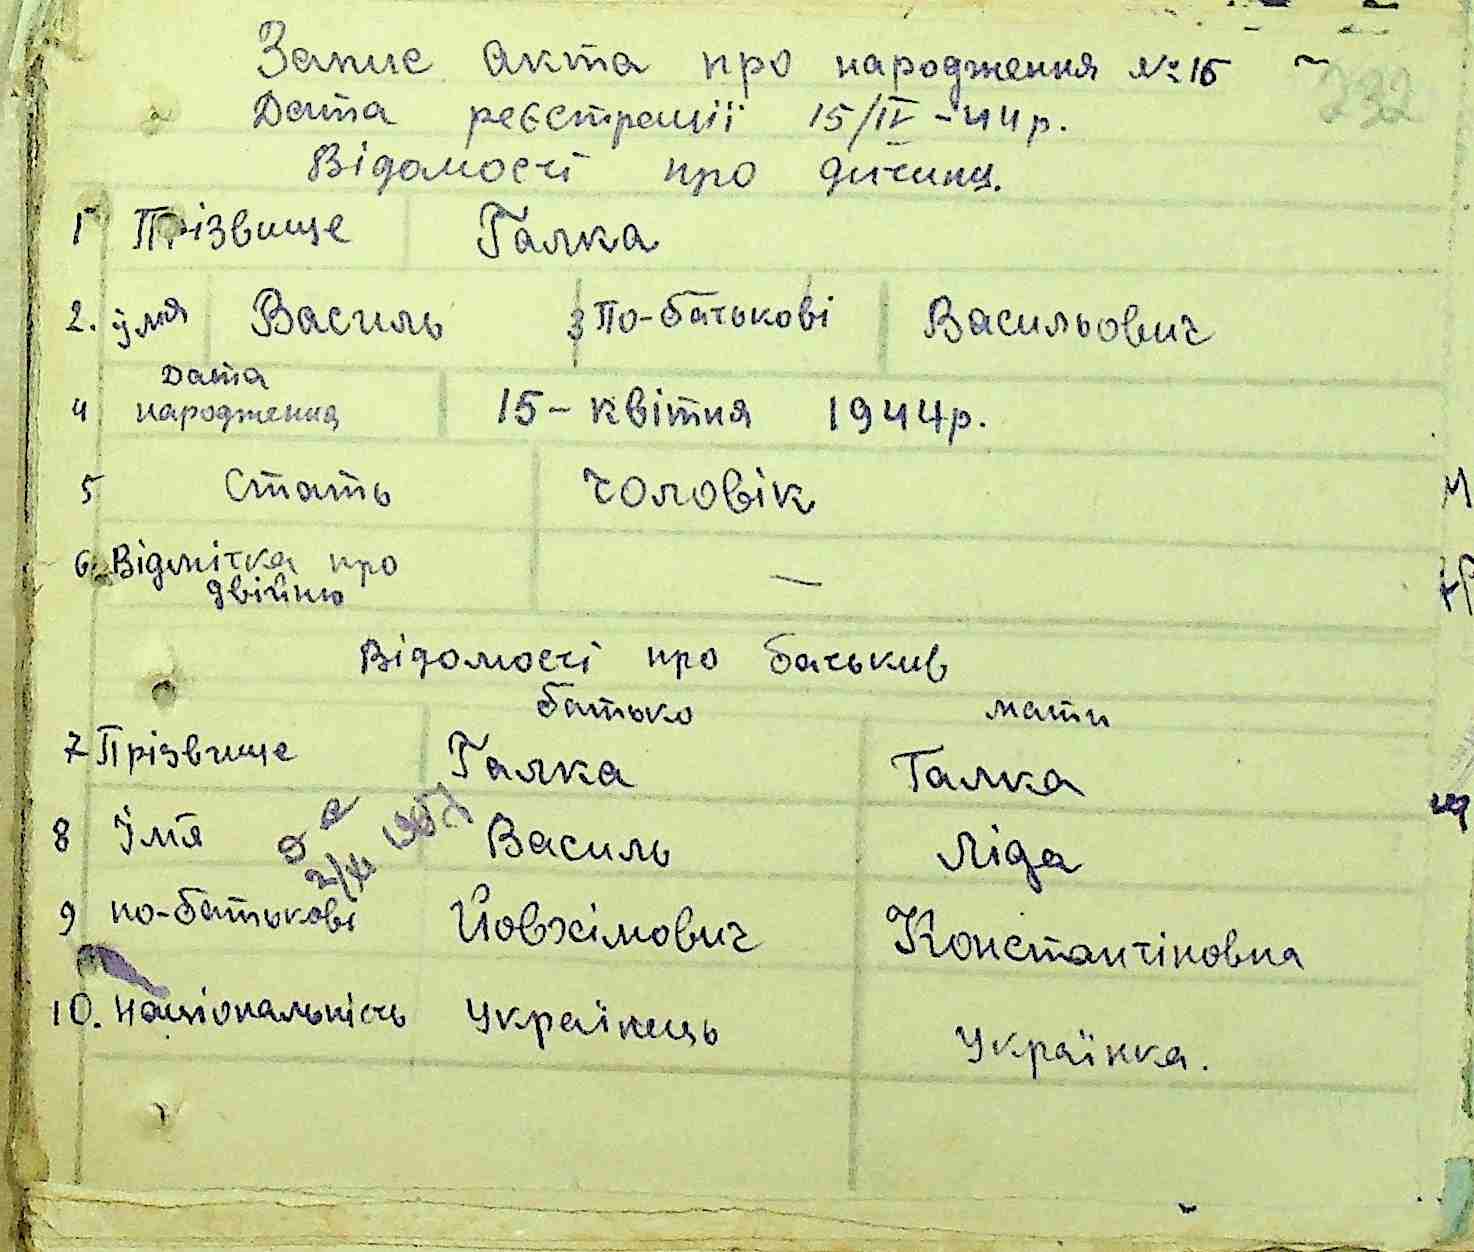 Запис акта про народження № 15
232
Дата реєстрації 15/IV - 44 р.
Відомості про дитину.
1 Прізвище Галка
2. їмя Василь 3 По-батькові Васильович
4 Дата народження 15 - квітня 1944 р.
5 Стать чоловік
6. Відмітка про двійню —
Відомості про батькив
батько мати
7 Прізвище Галка Галка
8 Їмя Василь Ліда
9 по-батькові Йовхімович Константіновна
10. Національність Українець Українка.